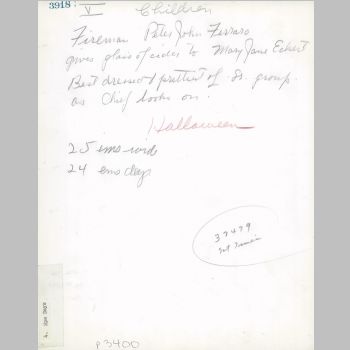 3918:
V Children
Fireman Peter John Ferraro
gives glass of cider to Mary Jane Eckert
Best dressed & prettiest of group.
as Chief looks on.
Halloween
25 ems wide
24 ems deep
37479
p3400